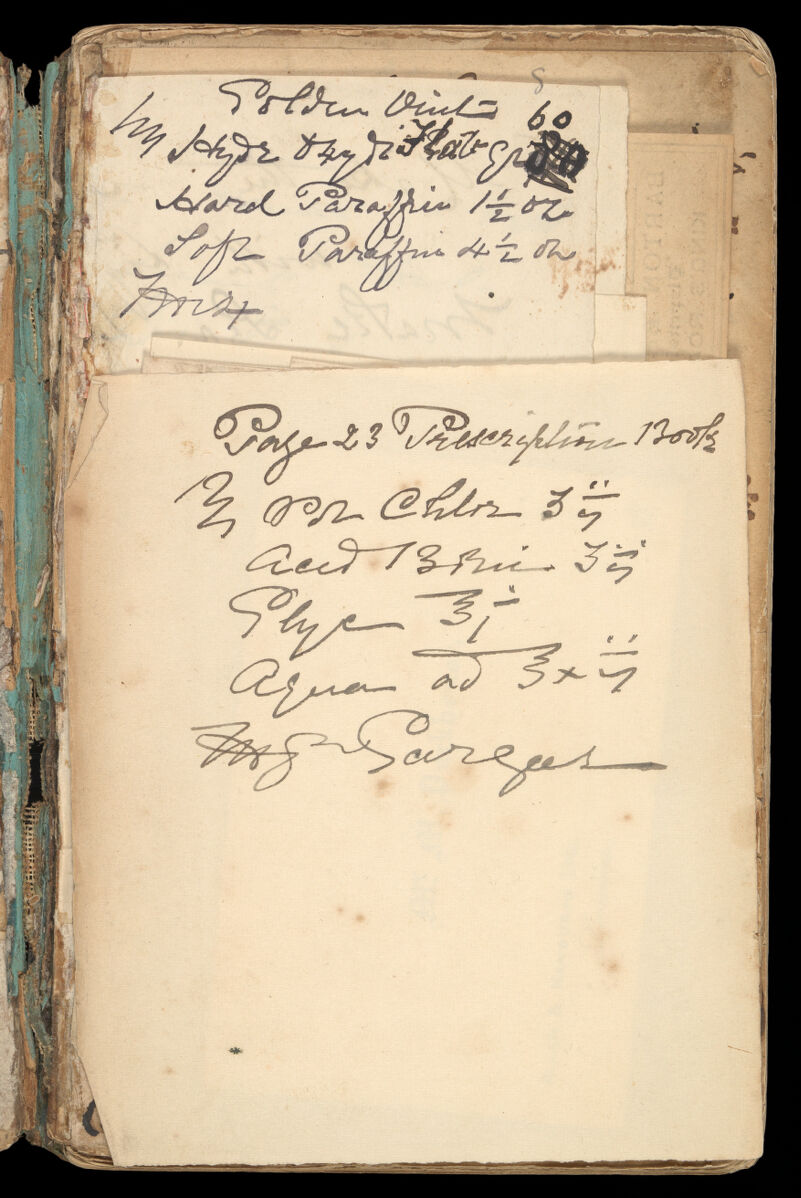 Golden Oint 60
℞ Hydr Oxydi Flav Gr
Hard Paraffin 1½ oz
Soft Paraffin 4½ oz
Page 23 Prescription Book
℞ Pot Chlor ʒij
Acid Boric ʒiij
Glyc ℥i
Aqua ad ℥xij
Gargar